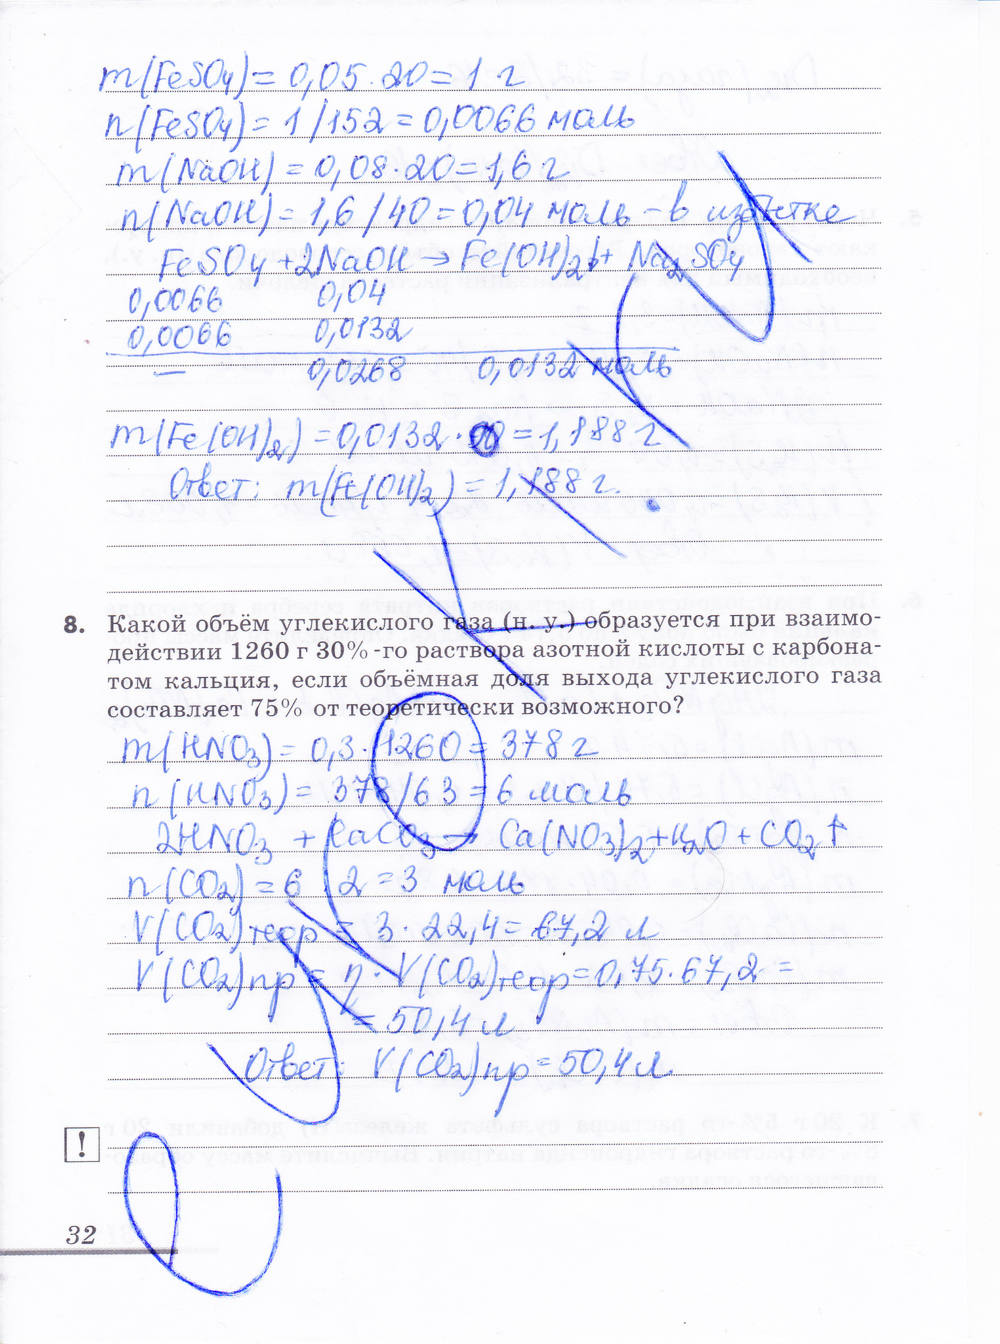 m(FeSO₄) = 0,05 · 20 = 1 г
n(FeSO₄) = 1/152 = 0,0066 моль
m(NaOH) = 0,08 · 20 = 1,6 г
n(NaOH) = 1,6/40 = 0,04 моль – в избытке
FeSO₄ + 2NaOH → Fe(OH)₂↓ + Na₂SO₄
0,0066 0,04
0,0066 0,0132
— 0,0268 0,0132 моль
m(Fe(OH)₂) = 0,0132 · 90 = 1,188 г
Ответ: m(Fe(OH)₂) = 1,188 г.
8. Какой объём углекислого газа (н. у.) образуется при взаимо-
действии 1260 г 30%-го раствора азотной кислоты с карбона-
том кальция, если объёмная доля выхода углекислого газа
составляет 75% от теоретически возможного?
m(HNO₃) = 0,3 · 1260 = 378 г
n(HNO₃) = 378/63 = 6 моль
2HNO₃ + CaCO₃ → Ca(NO₃)₂ + H₂O + CO₂↑
n(CO₂) = 6/2 = 3 моль
V(CO₂)теор = 3 · 22,4 = 67,2 л
V(CO₂)пр = η · V(CO₂)теор = 0,75 · 67,2 =
= 50,4 л
Ответ: V(CO₂)пр = 50,4 л.
!
32